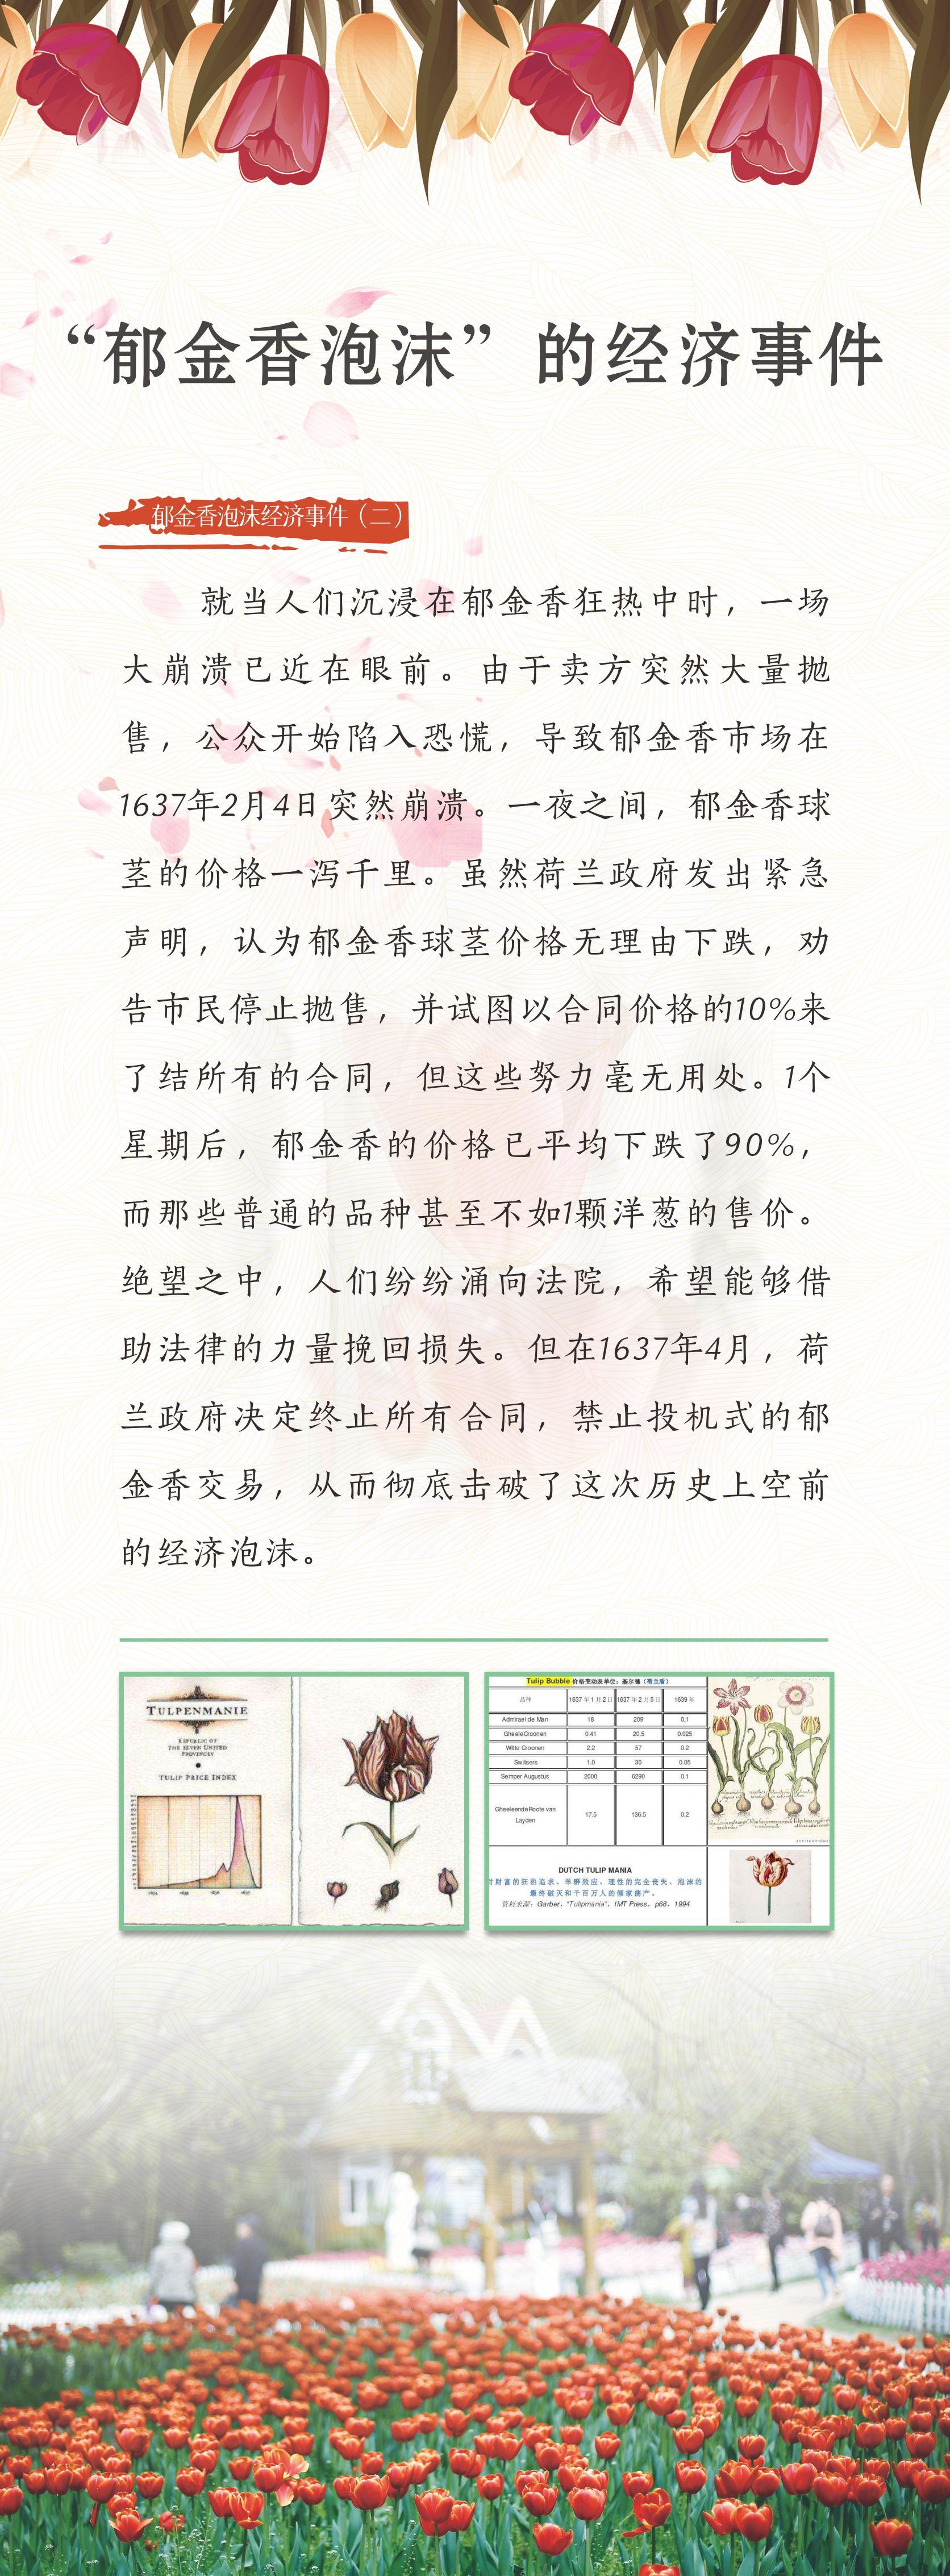 “郁金香泡沫”的经济事件
郁金香泡沫经济事件（二）
就当人们沉浸在郁金香狂热中时，一场
大崩溃已近在眼前。由于卖方突然大量抛
售，公众开始陷入恐慌，导致郁金香市场在
1637年2月4日突然崩溃。一夜之间，郁金香球
茎的价格一泻千里。虽然荷兰政府发出紧急
声明，认为郁金香球茎价格无理由下跌，劝
告市民停止抛售，并试图以合同价格的10%来
了结所有的合同，但这些努力毫无用处。1个
星期后，郁金香的价格已平均下跌了90%，
而那些普通的品种甚至不如1颗洋葱的售价。
绝望之中，人们纷纷涌向法院，希望能够借
助法律的力量挽回损失。但在1637年4月，荷
兰政府决定终止所有合同，禁止投机式的郁
金香交易，从而彻底击破了这次历史上空前
的经济泡沫。
TULPENMANIE
REPUBLIC OF
THE SEVEN UNITED
PROVINCES
TULIP PRICE INDEX
Tulip Bubble 价格变动表单位：基尔德（荷兰盾）
品种 1637年1月2日 1637年2月5日 1639年
Admirael de Man 18 209 0.1
GheeleCroonen 0.41 20.5 0.025
Witte Croonen 2.2 57 0.2
Switsers 1.0 30 0.05
Semper Augustus 2000 6290 0.1
GheeleendeRoote van
Leyden 17.5 136.5 0.2
DUTCH TULIP MANIA
对财富的狂热追求、羊群效应、理性的完全丧失、泡沫的
最终破灭和千百万人的倾家荡产。
资料来源：Garber，“Tulipmania”，IMT Press，p68，1994